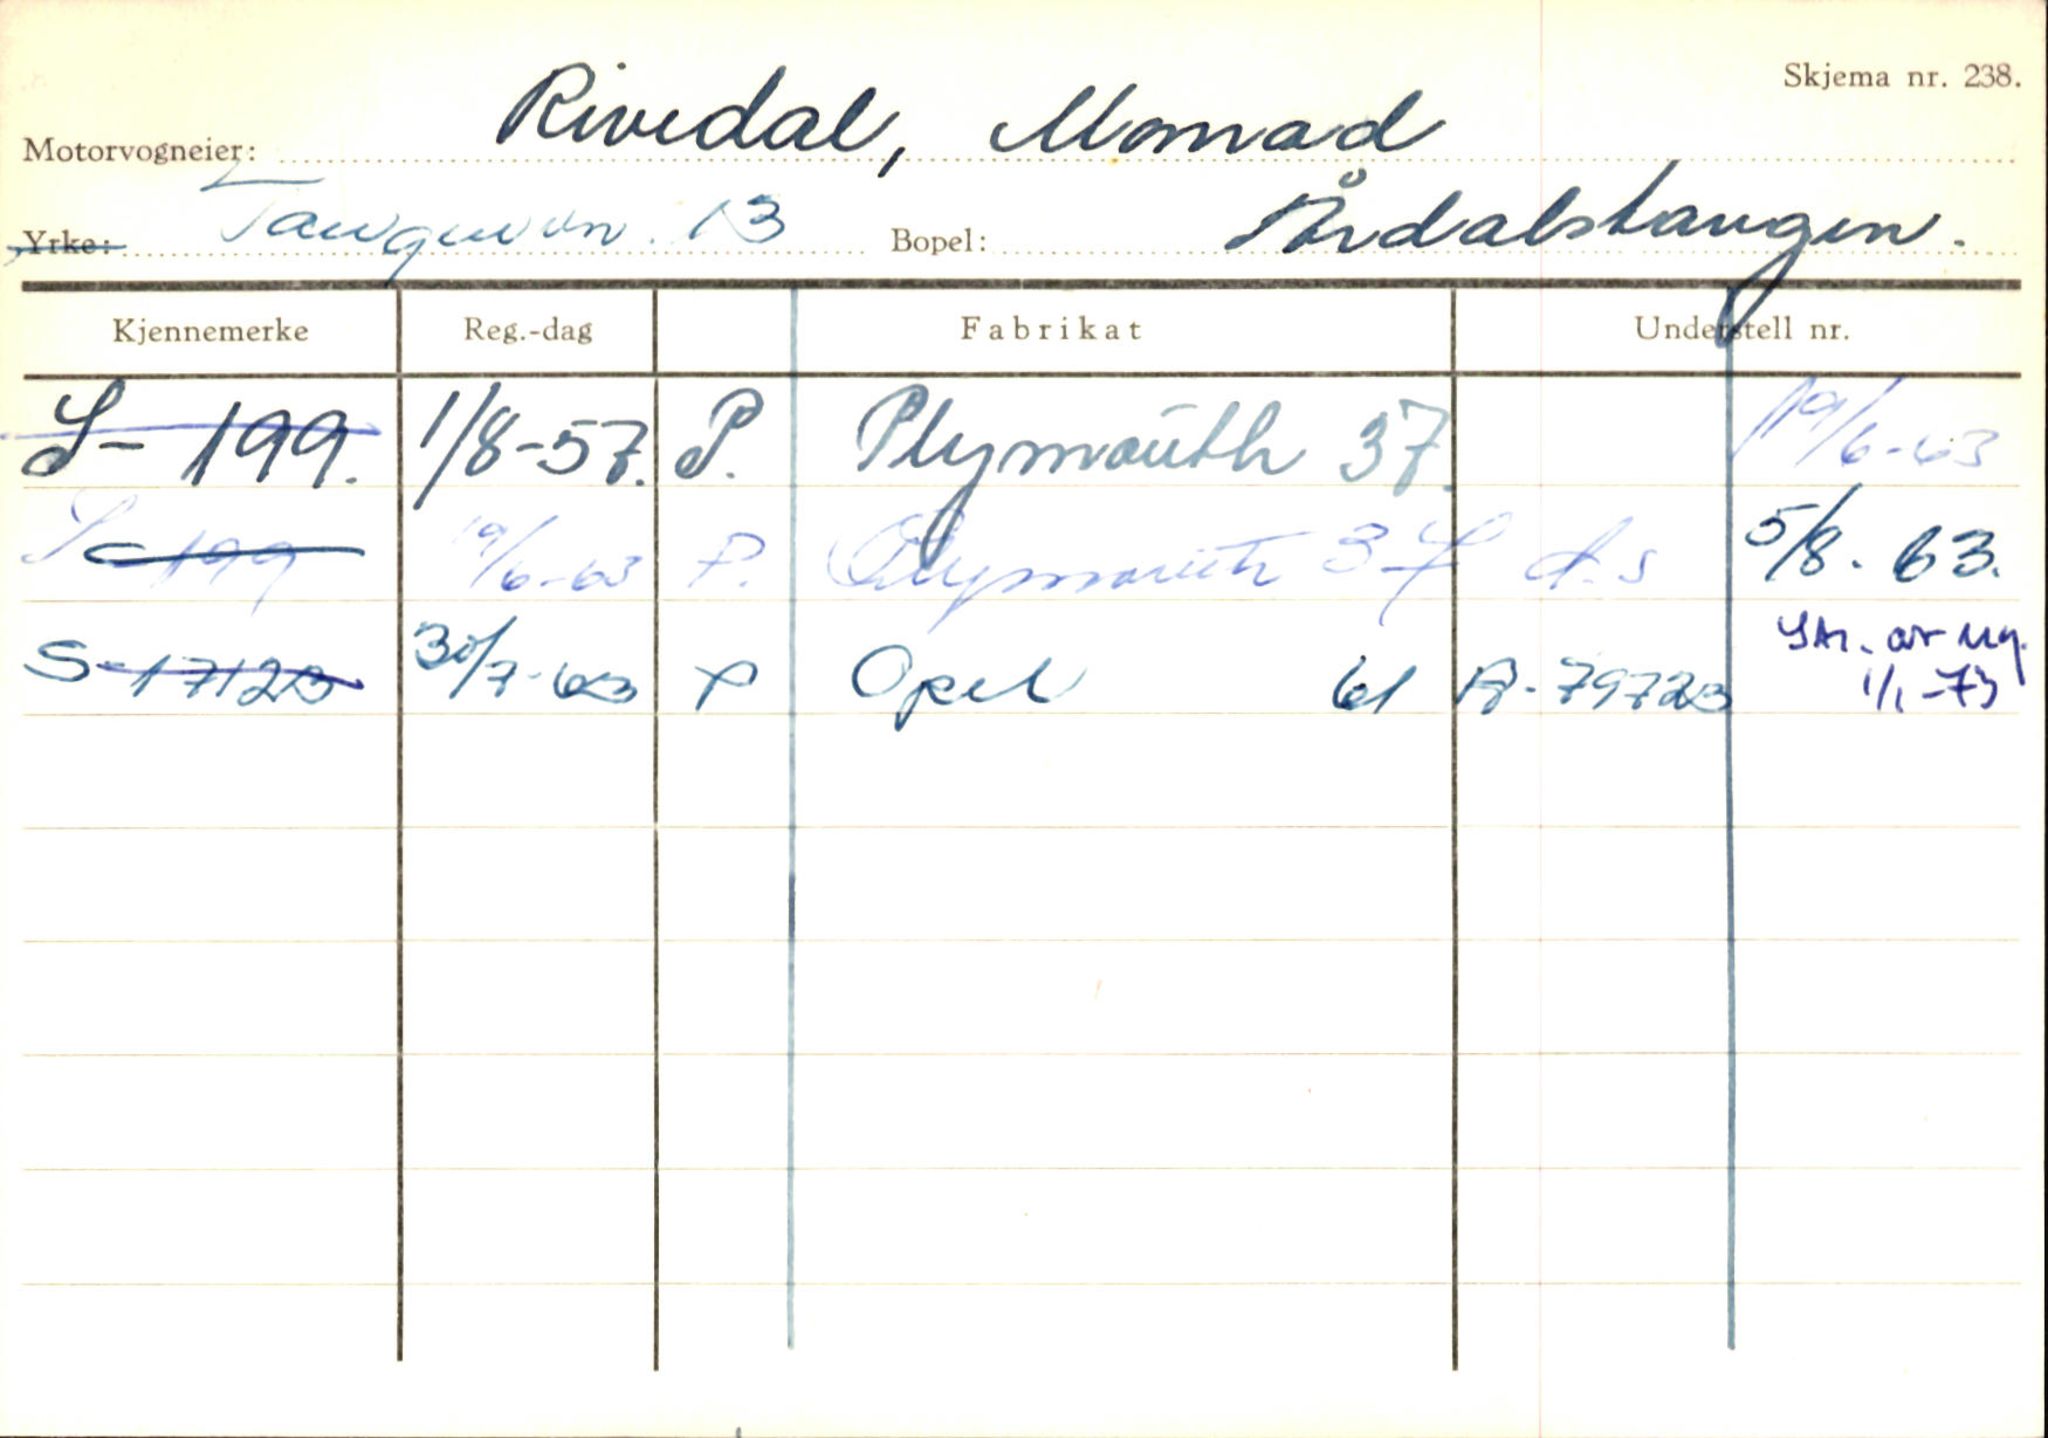 Skjema nr. 238.
Motorvogneier: Rivedal, Monrad
Yrke: Tangevn. 13 Bopel: Årdalstangen.
Kjennemerke Reg.-dag Fabrikat Understell nr.
S- 199. 1/8-57. P. Plymouth 37. 19/6-63
S 199 19/6-63 P. Plymouth 37 d.s 5/8. 63.
S-17123 30/7-63 P Opel 61 R-79723 Str. av reg. 1/1-73